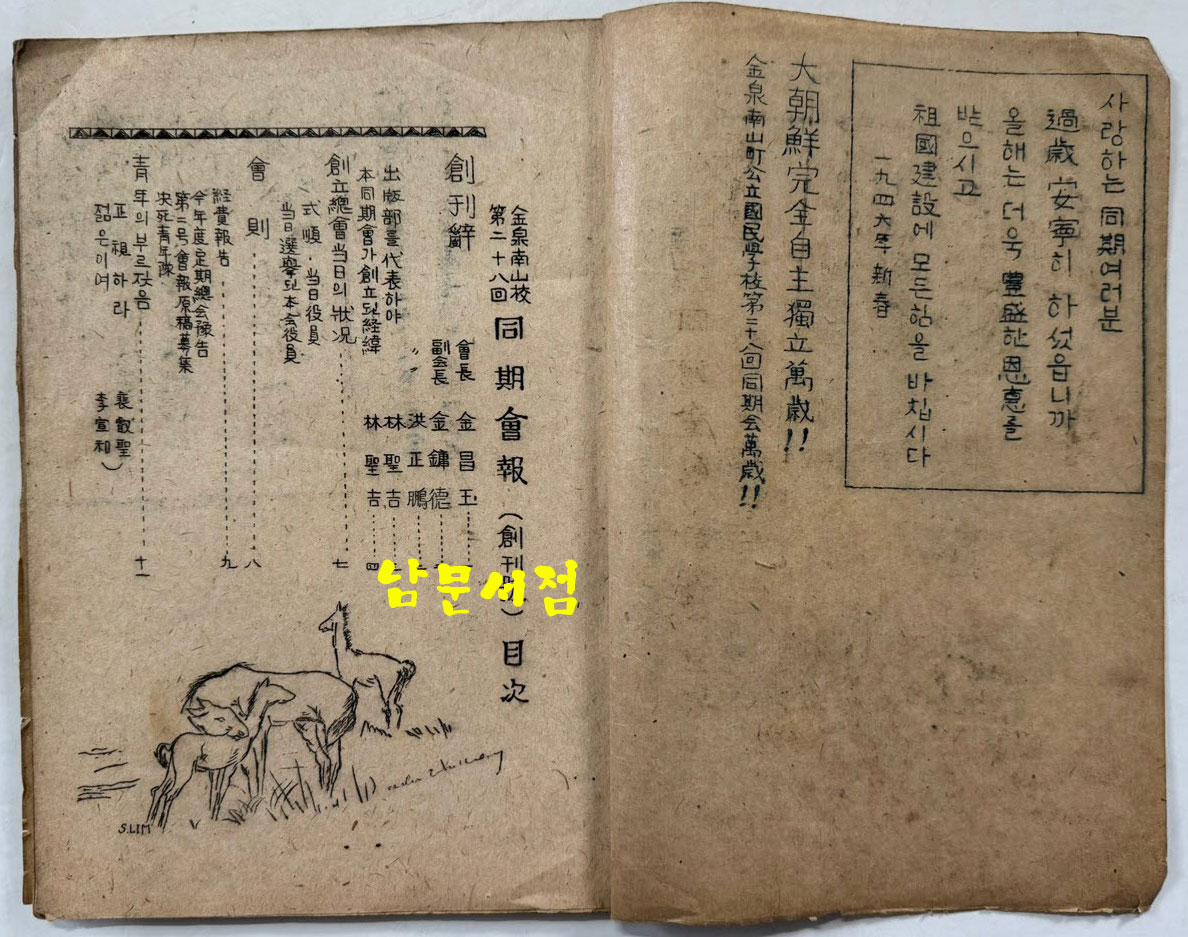 사랑하는 同期여러분
過歲 安寧히 하섰읍니까
올해는 더욱 豊盛한 恩惠를
받으시고
祖國建設에 모든힘을 바칩시다
一九四六年 新春
大朝鮮完全自主獨立萬歲!!
金泉南山町公立國民学校第二十八回同期会萬歲!!
金泉南山校
第二十八回 同期會報 (創刊号) 目次
創刊辭 會長 金昌玉
副会長 金鏞德
〃 洪正鵬
出版部를代表하야 林聖吉
本同期會가創立된経緯 林聖吉 四
創立總會当日의狀况 七
式順·当日役員
当日選擧된本会役員
會則 八
経費報告 九
今年度定期總会豫告
第二号會報原稿募集
決死青年隊
青年의부르짖음 十一
正祖하라 裵
젊은이여 李宣和)
S.LIM
남문서점